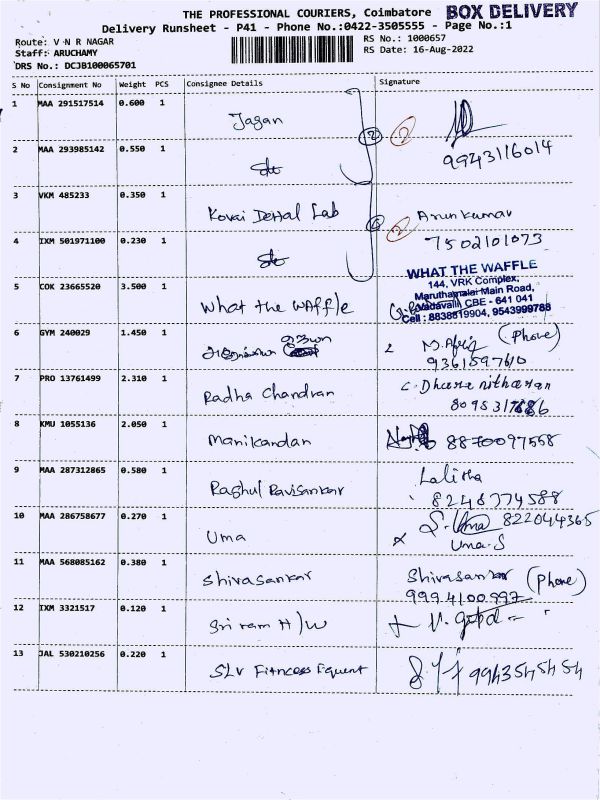 THE PROFESSIONAL COURIERS, Coimbatore BOX DELIVERY
Delivery Runsheet - P41 - Phone No.:0422-3505555 - Page No.:1
Route: V N R NAGAR
RS No.: 1000657
Staff: ARUCHAMY
RS Date: 16-Aug-2022
DRS No.: DCJB100065701
S No Consignment No Weight PCS Consignee Details Signature
1 MAA 291517514 0.600 1 Jagan
2 2
2 MAA 293985142 0.550 1 9943116014
3 VKM 485233 0.350 1 Kovai Dental Lab Arun kumar
2
4 IXM 501971100 0.230 1 7502101073
5 COK 23665520 3.500 1 What the Waffle
WHAT THE WAFFLE
144, VRK Complex,
Maruthamalai Main Road,
Vadavalli, CBE - 641 041
Cell : 8838519904, 9543999788
6 GYM 240029 1.450 1 (Phone)
9361597610
7 PRO 13761499 2.310 1 Radha Chandran C. Dharanitharan
8 KMU 1055136 2.050 1 Manikandan 8870097558
9 MAA 287312865 0.580 1 Raghul Ravisankar Lalitha
8248774588
10 MAA 286758677 0.270 1 Uma S. Uma 822044365
Uma-S
11 MAA 568085162 0.380 1 Shivasankar Shivasankar (Phone)
9994100997
12 IXM 3321517 0.120 1 Sri ram H/W
13 JAL 530210256 0.220 1 SLV Fitness Equent 9943545454